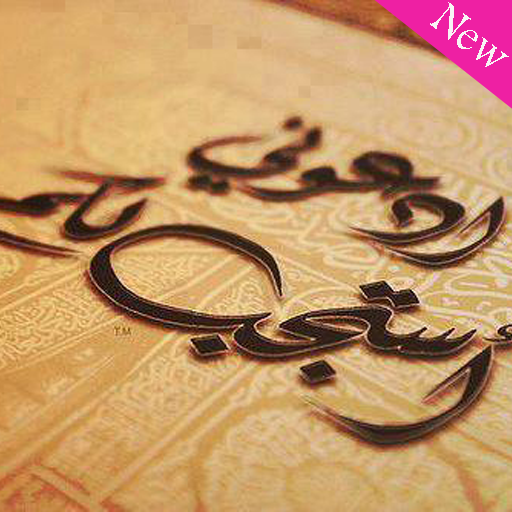 New
ادعوني
أستجب لكم
TM